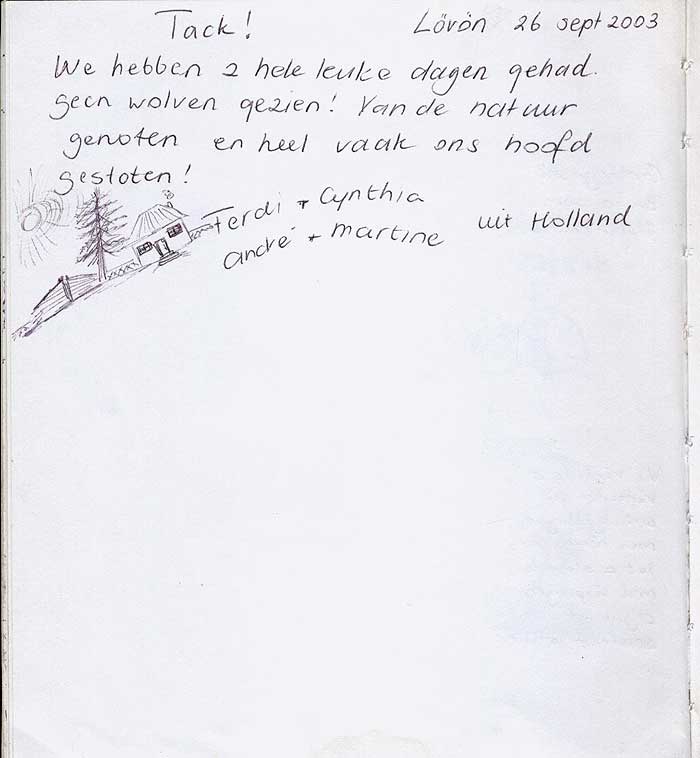 Tack! Lövön 26 sept 2003
We hebben 2 hele leuke dagen gehad.
Geen wolven gezien! Van de natuur
genoten en heel vaak ons hoofd
gestoten!
Ferdi + Cynthia
André + Martine uit Holland